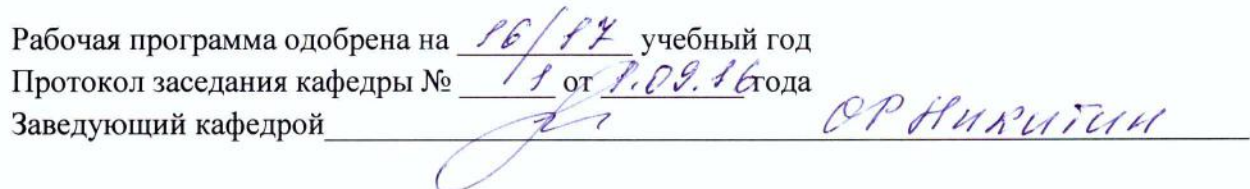 Рабочая программа одобрена на 16/17 учебный год
Протокол заседания кафедры № 1 от 1.09.16 года
Заведующий кафедрой ОР Никитин